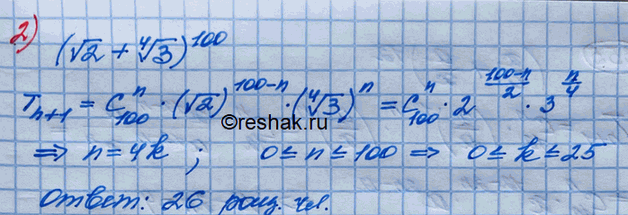 2)
(√2 + ⁴√3)¹⁰⁰
Tₙ₊₁ = C₁₀₀ⁿ · (√2)¹⁰⁰⁻ⁿ · (⁴√3)ⁿ = C₁₀₀ⁿ · 2^((100-n)/2) · 3^(n/4)
©reshak.ru
⇒ n = 4k ; 0 ≤ n ≤ 100 ⇒ 0 ≤ k ≤ 25
Ответ: 26 рац. чл.